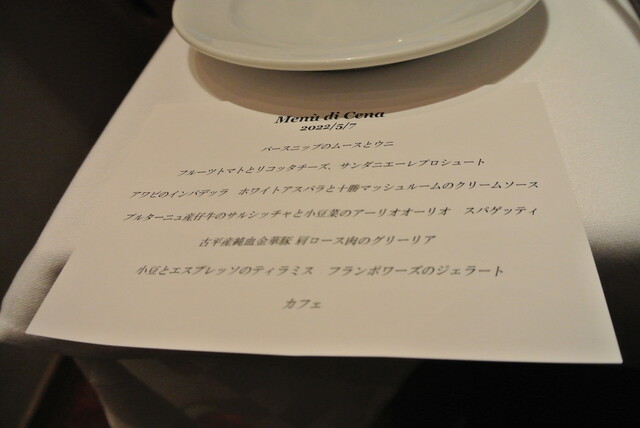 Menù di Cena
2022/5/7
パースニップのムースとウニ
フルーツトマトとリコッタチーズ、サンダニエーレプロシュート
アワビのインパデッラ　ホワイトアスパラと十勝マッシュルームのクリームソース
ブルターニュ産仔牛のサルシッチャと小豆菜のアーリオオーリオ　スパゲッティ
古平産純血金華豚 肩ロース肉のグリーリア
小豆とエスプレッソのティラミス　フランボワーズのジェラート
カフェ